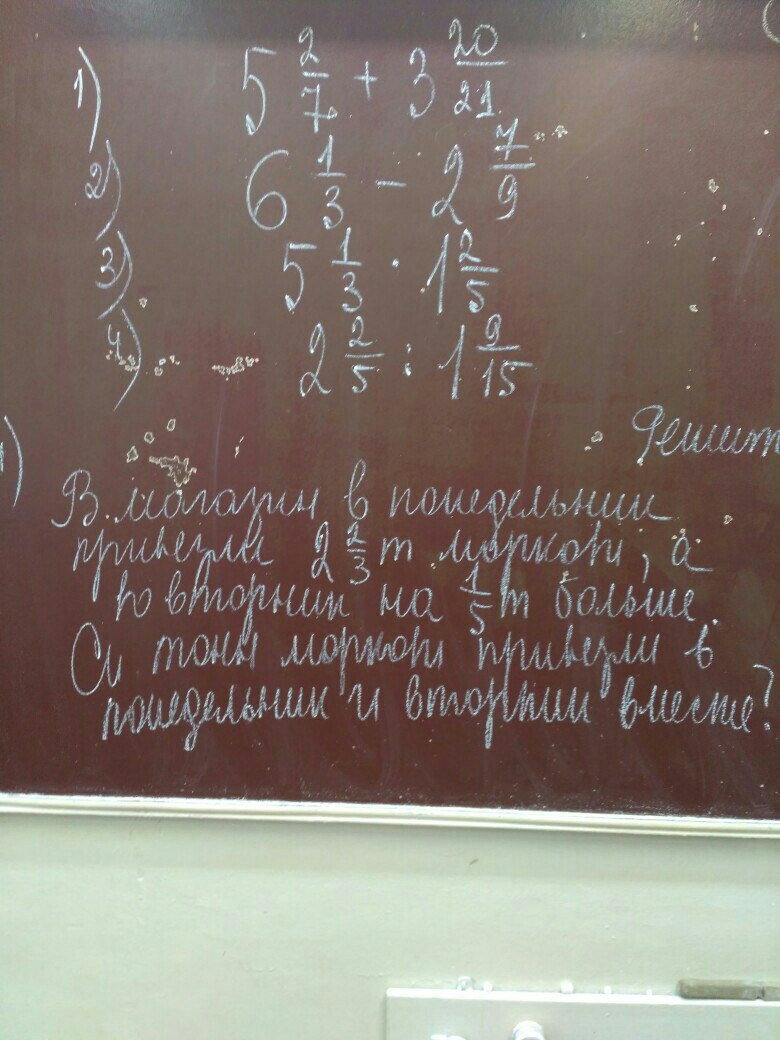 1) 5 2/7 + 3 20/21
2) 6 1/3 - 2 7/9
3) 5 1/3 · 1 2/5
4) 2 2/5 : 1 9/15
Решит
В магазин в понедельник
привезли 2 2/3 т моркови, а
во вторник на 1/5 т больше.
Ск тонн моркови привезли в
понедельник и вторник вместе?